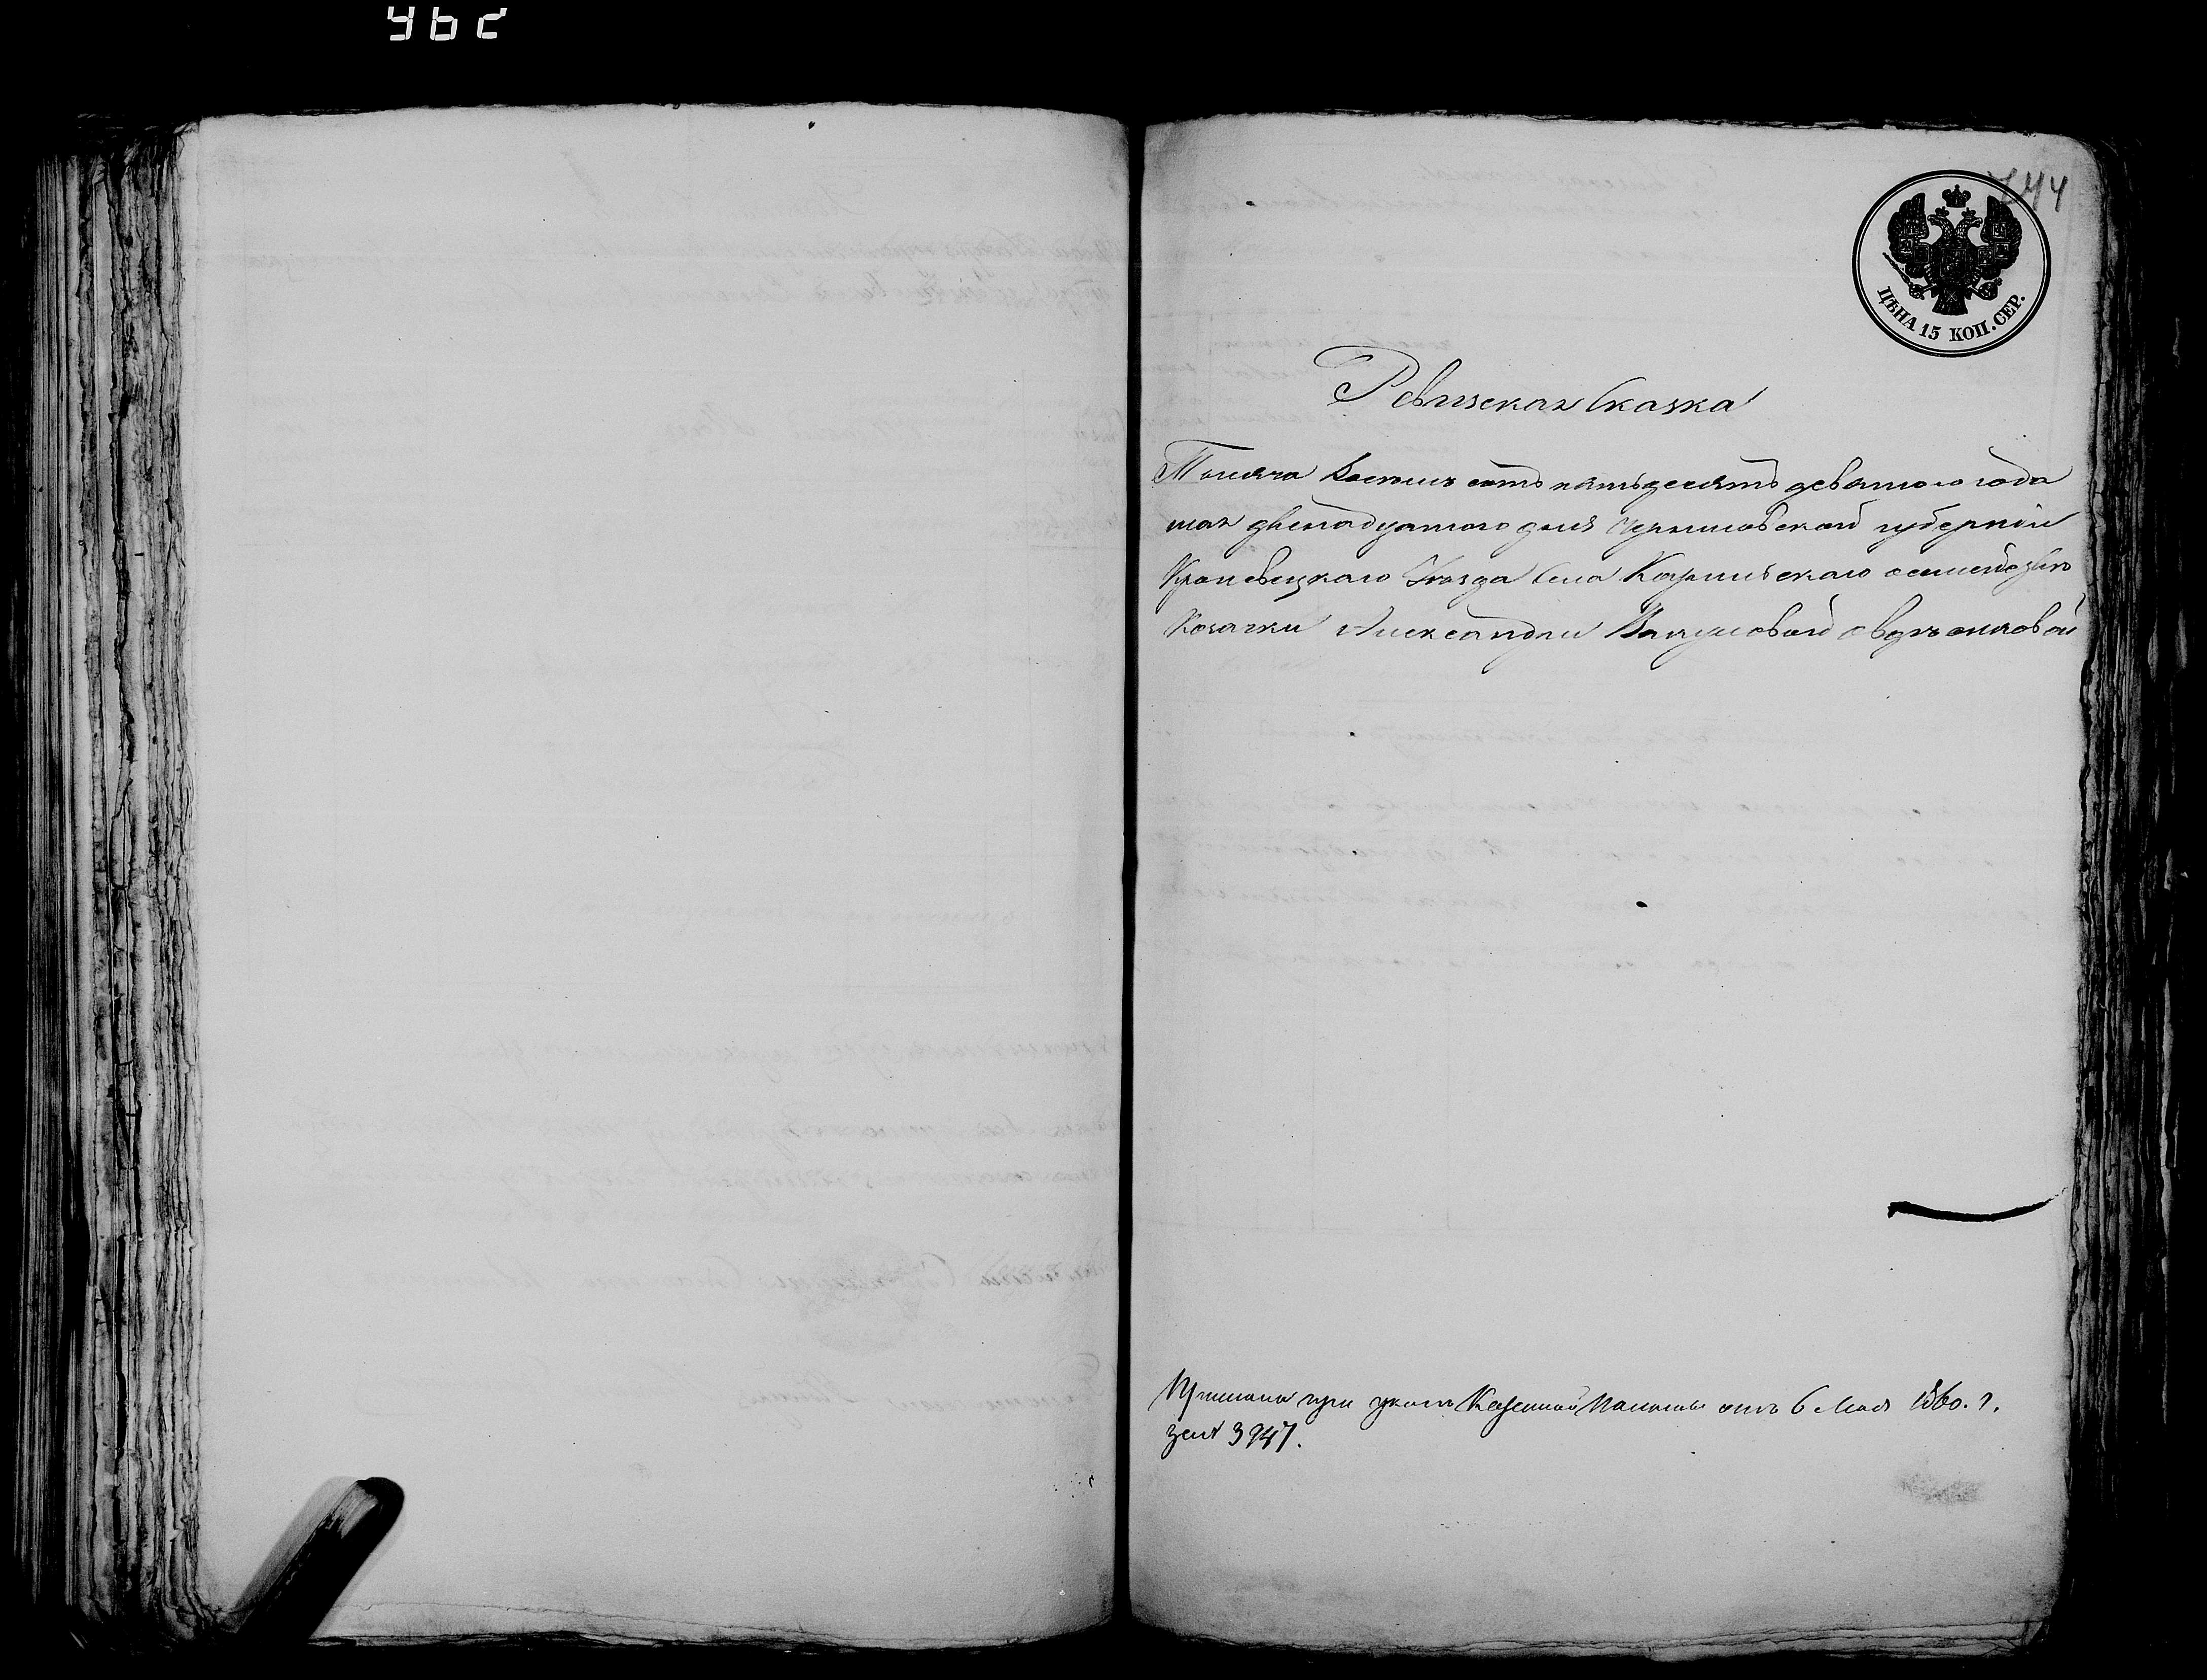 462
744
ЦѢНА 15 КОП. СЕР.
Ревизская Сказка
Тысяча восемь сотъ пятьдесятъ девятого года
мая двенадцатого дня Черниговской губерніи
Кролевецкаго Уѣзда Села о семействѣ
Козачки Александры
при указѣ Казенной Палаты отъ 6 Мая 1860. г.
за № 3947.